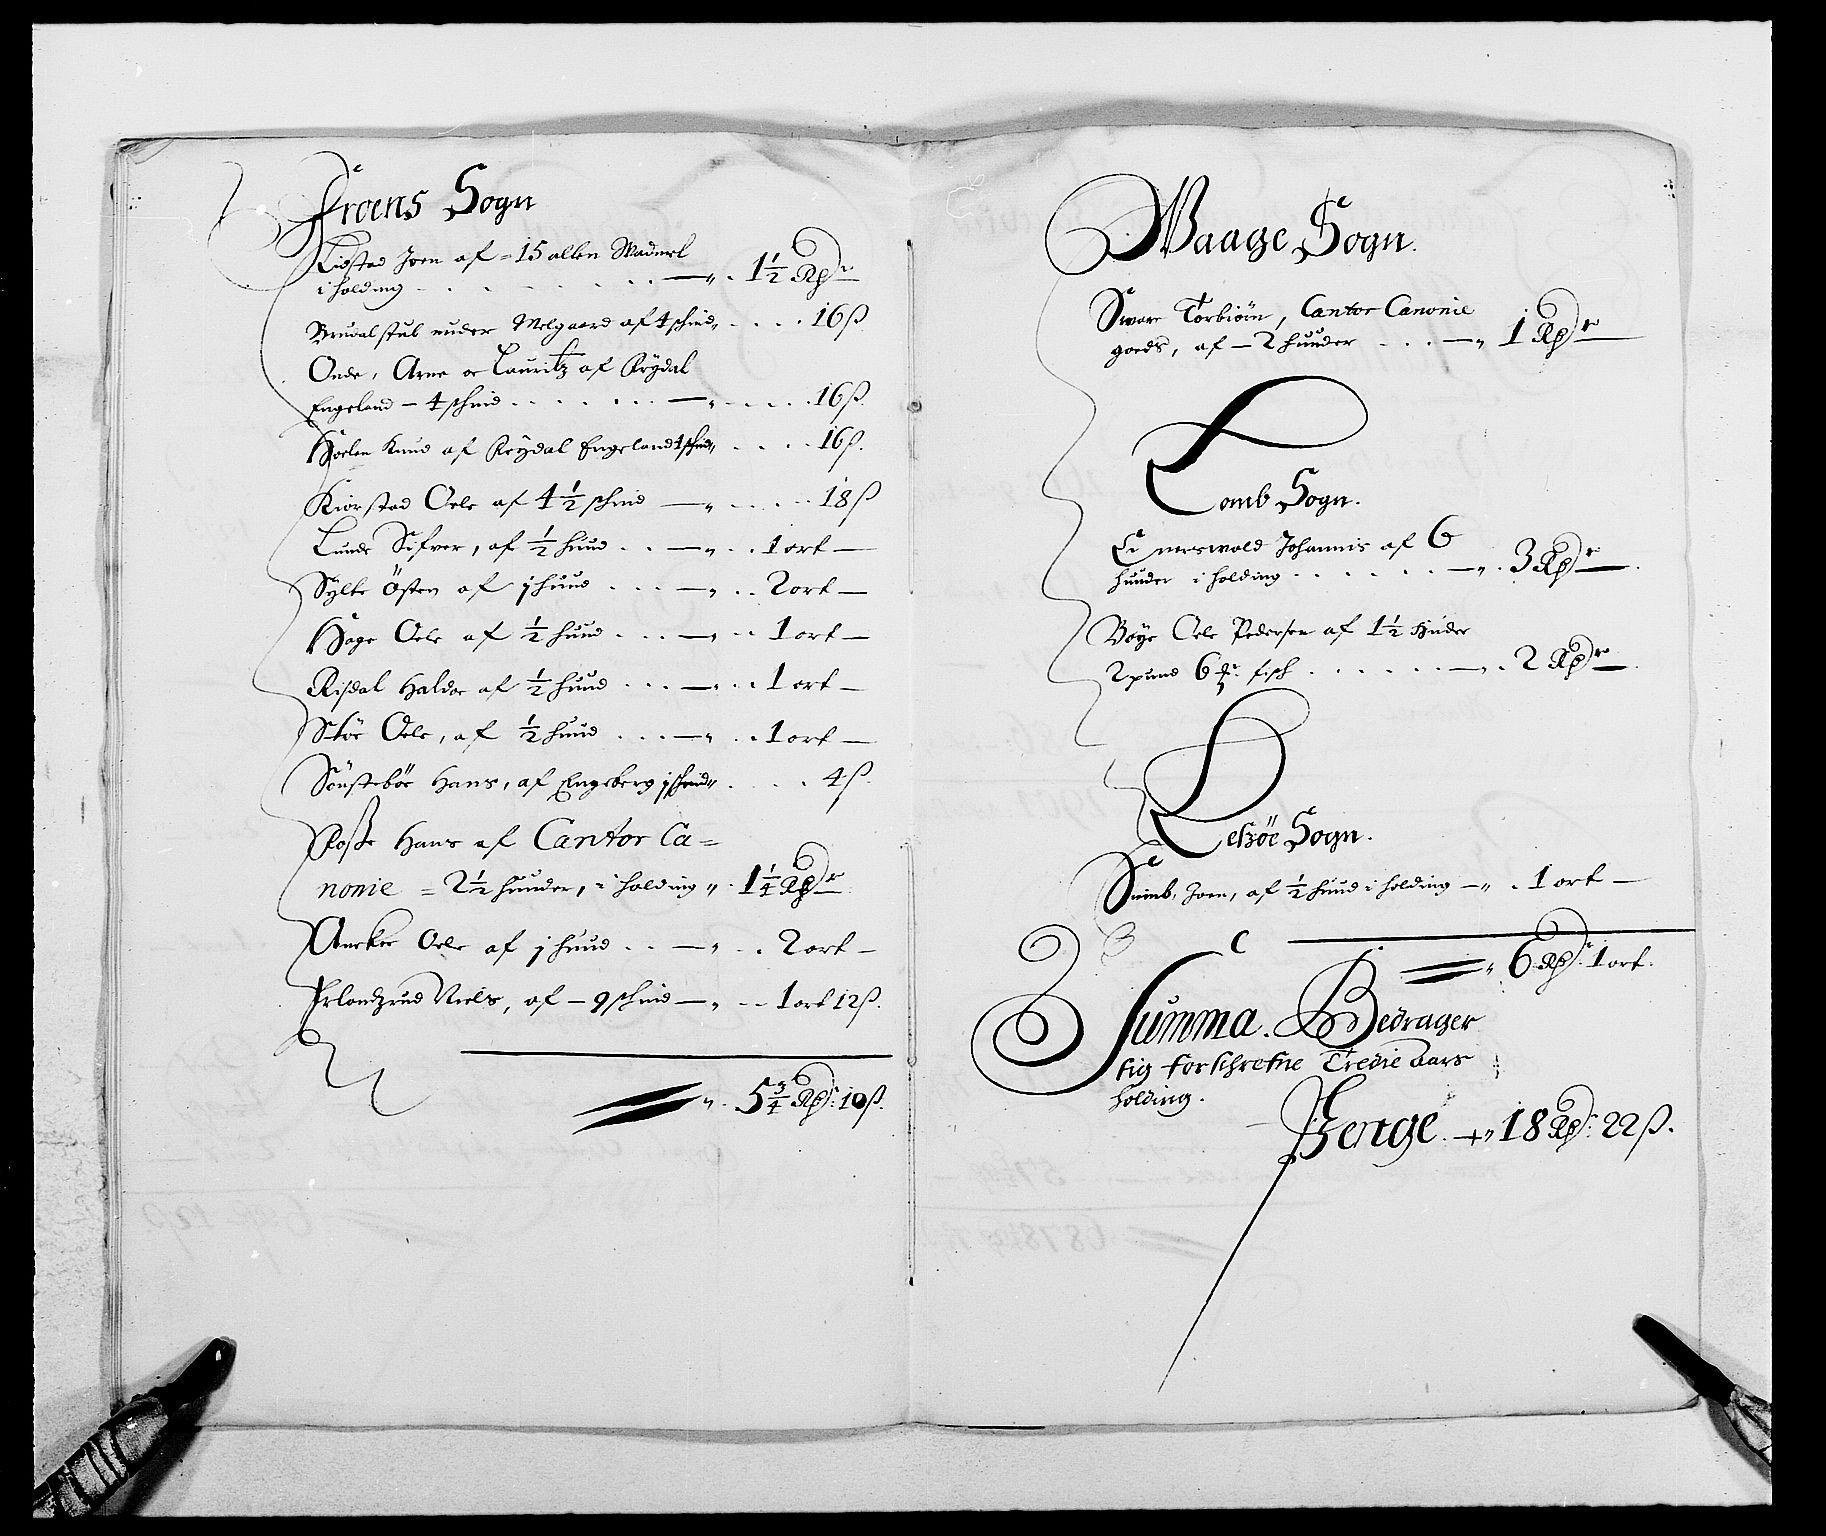 Froens Sogn
Lidstad Joen af = 15 allen Wadmel
i holding - - - - - - - " - 1½ Rdr
Brudalstul under Melgaard af 4 schind" - - - - 16 ß
Onde, Arne oc Lauritz af Rÿdal
Engeland - 4 schind - - - - - " - - - - 16 ß.
Hoelen Knud af Rÿdal Engeland 4 schind" - - - - 16 ß.
Kiorstad Oele af 4½ schind - " - - - - 18 ß
Lunde Sifver, af ½ huud - - - " - - 1 ort -
Sylte Östen af j huud - - - - " - - 2 ort -
Hage Oele af ½ huud - - - - " - - 1 ort -
Risdal Haldor af ½ huud - - - - " - - 1 ort -
Stöe Oele, af ½ huud - - - - " - - 1 ort -
Sönsteböe Hans, af Engeberg j schind" - - - - 4 ß.
Loße Hans af Cantor Ca=
nonie = 2½ huuder, i holding " - 1¼ Rdr
Aucker Oele af j huud - - - " - - 2 ort -
Erlandzrud Niels, af - 9 schind - " - - 1 ort 12 ß.
" - 5¾ Rdr: 10 ß.
Waage Sogn.
Sware Torbiörn, Cantor Canonie
goeds, af - 2 huuder - - - - " 1 Rdr
Lomb Sogn.
johannis af 6
huuder i holding - - - - - - " - 3 Rdr
Böye Oele Pedersen af 1½ Huder
2 pund 6 fisch - - - - - - " - 2 Rdr
Leßöe Sogn.
Joen, af ½ huud i holding - " - 1 ort -
" 6 Rdr: 1 ort.
Summa. Bedrager
sig forschrefne Tredie Aars
holding.
Penge. -" 18 Rdr: 22 ß.